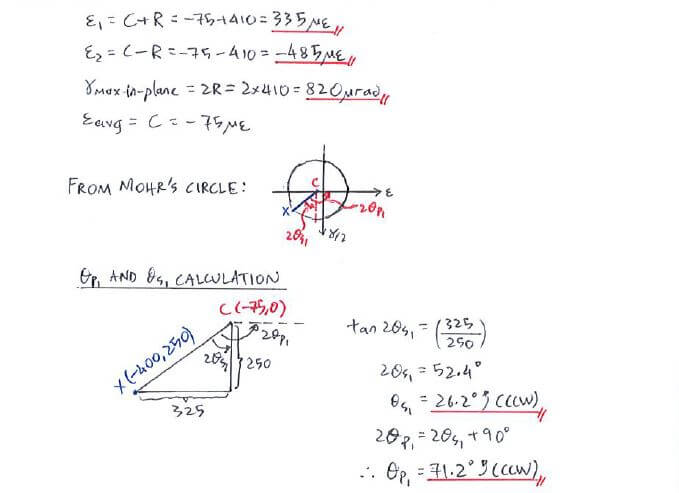 ε₁ = C+R = -75+410 = 335με
ε₂ = C-R = -75-410 = -485με
γmax-in-plane = 2R = 2×410 = 820μrad
εavg = C = -75με
FROM MOHR'S CIRCLE:
C
ε
X
2θp₁
2θs₁
γ/2
θp₁ AND θs₁ CALCULATION
C(-75,0)
X(-400,250)
2θs₁
2θp₁
250
325
tan 2θs₁ = (325/250)
2θs₁ = 52.4°
θs₁ = 26.2° (CCW)
2θp₁ = 2θs₁ + 90°
∴ θp₁ = 71.2° (CCW)